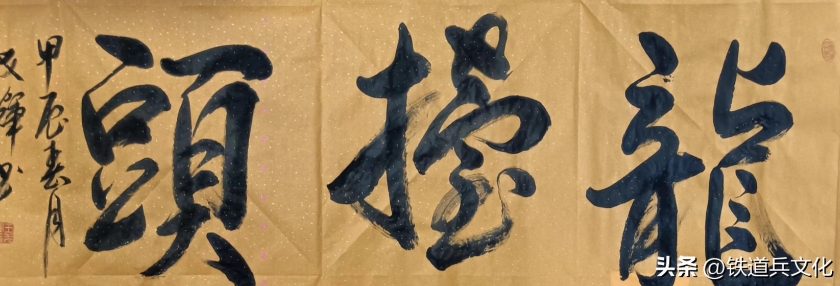 龍擡頭
甲辰春月
文輝书
头条 @铁道兵文化